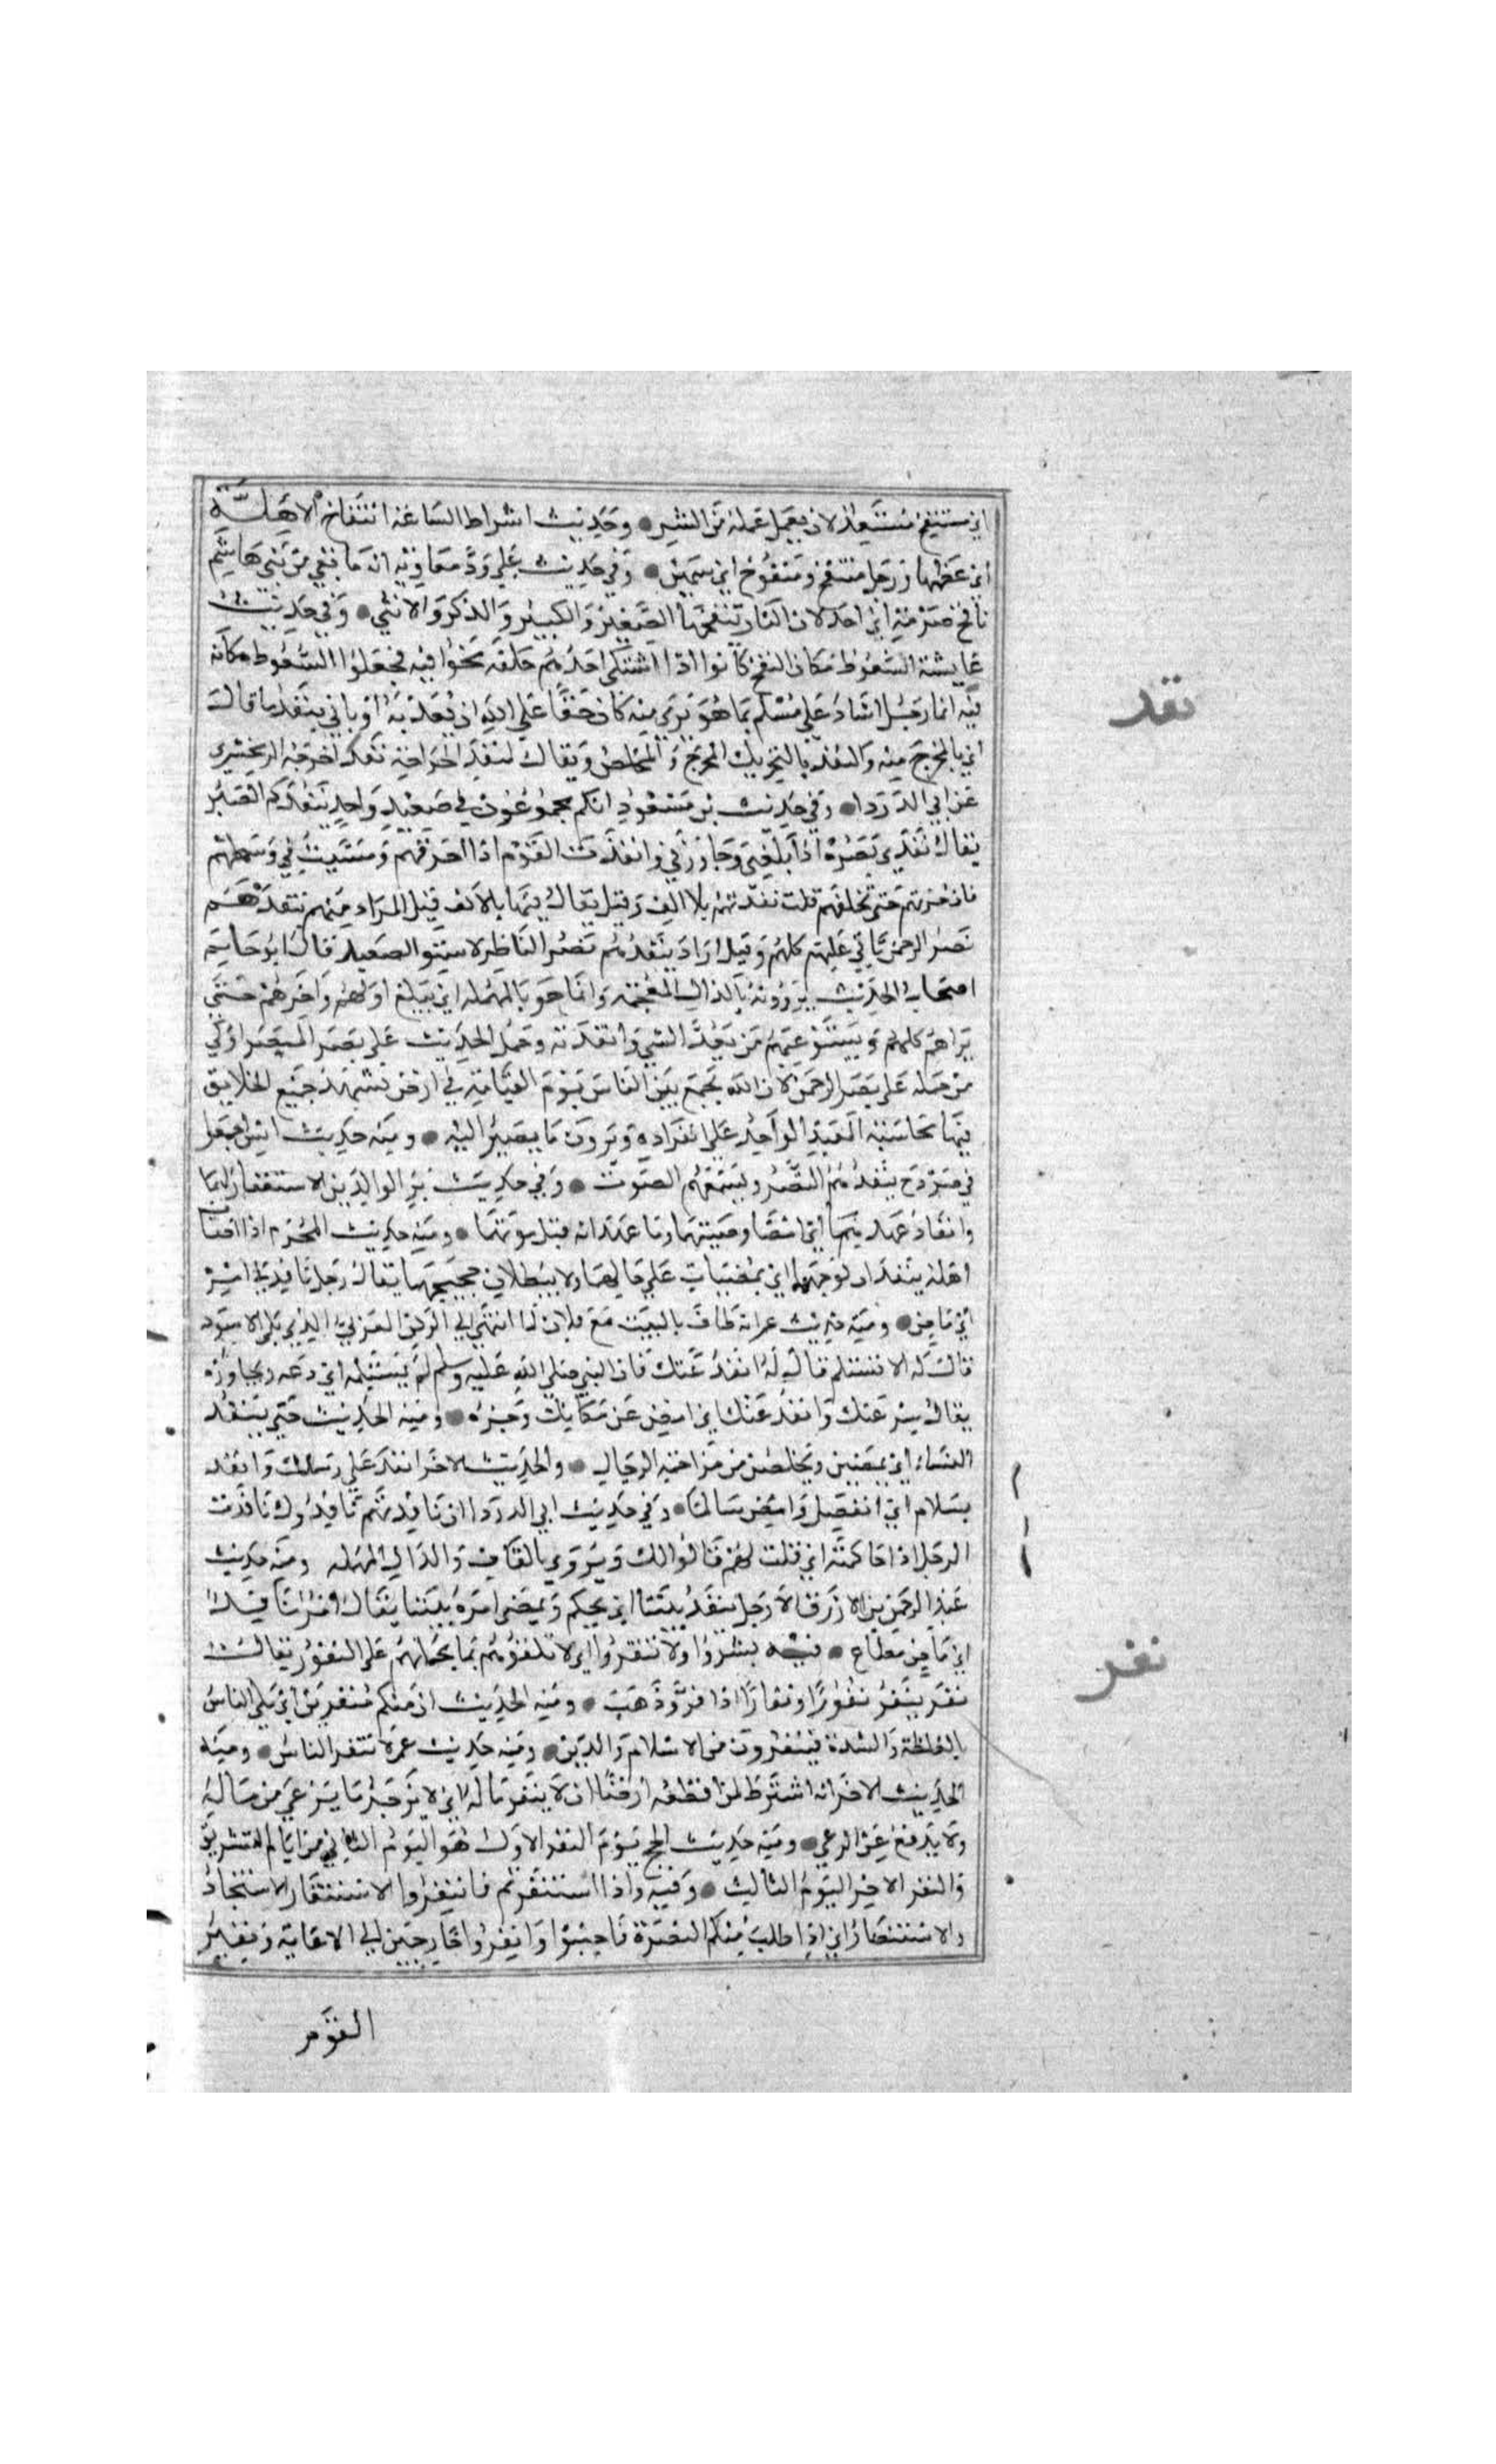 اي منتفخ مستعد لان يعمل عمله من الشر وحديث اشراط الساعة انتفاخ الاهلة
اي عظمها ورجل منتفخ ومنفوخ اي سمين وفي حديث علي ود معاوية انه ما بقي من بني هاشم
نافخ ضرمة اي احد لان النار ينفخها الصغير والكبير والذكر والانثي وفي حديث
عايشة السعوط مكان النفخ كانوا اذا اشتكي احدهم حلقه نفخوا فيه فجعلوا السعوط مكانه
نفد
فيه ايما رجل اشاد علي مسلم بما هو بري منه كان حقا علي الله ان يعذبه او ياتي بنفد ما قال
اي بالمخرج منه والنفد بالتحريك المخرج والمخلص ويقال لمنفد الجراحة نفد اخرجه الزمخشري
عن ابي الدردا وفي حديث بن مسعود انكم مجموعون في صعيد واحد ينفدكم البصر
يقال نفدني بصره اذا بلغني وجاوزني وانفدت القوم اذا اخرقتهم ومشيت في وسطهم
فان جزتهم حتي تخلفهم قلت نفدتهم بلا الف وقيل يقال فيها بالالف قيل المراد منهم ينفدهم
بصر الرحمن ياتي عليهم كلهم وقيل اراد ينفدهم بصر الناظر لاستوا الصعيد قال ابو حاتم
اصحاب الحديث يروونه بالذال المعجمة وانما هو بالمهملة اي يبلغ اولهم واخرهم حتي
يراهم كلهم ويستوعبهم من نفد الشي وانفدته وحمل الحديث علي بصر المبصر اولي
من حمله علي بصر الرحمن لان الله يجمع بين الناس يوم القيامة في ارض تشهد جميع الخلايق
فيها محاسبة العبد الواحد علي انفراده ويرون ما يصير اليه ومنه حديث انس جمعوا
في صردح ينفدهم البصر ويسمعهم الصوت وفي حديث بر الوالدين الاستغفار لهما
وانفاذ عهدهما اي امضا وصيتهما وما عهدا به قبل موتهما ومنه حديث المحرم اذا اصاب
اهله ينفدان لوجههما اي يمضيان علي حالهما ولا يبطلان حجهما يقال رجل نافد في امره
اي ماض ومنه حديث عمر انه طاف بالبيت مع فلان فلما انتهي الي الركن الغربي الذي يلي الاسود
قال له الا تستلم فقال له انفد عنك فان النبي صلي الله عليه وسلم لم يستلمه اي دعه وتجاوزه
يقال سر عنك وانفد عنك اي امض عن مكانك وجزه ومنه الحديث حتي ينفد
النساء اي يمضين ويتخلصن من مزاحمة الرجال والحديث الاخر انفد علي رسلك وانفد
بسلام اي انفصل وامض سالما وفي حديث ابي الدردا ان نافدتهم نافدوك نافدت
الرجل اذا حاكمته اي قلت لهم قالوا لك ويروي بالقاف والدال المهملة ومنه حديث
عبد الرحمن بن الازرق الا رجل ينفد بيننا اي يحكم ويمضي امره بيننا يقال امره نافد
اي ماض مطاع
نفر
فيه بشروا ولا تنفروا اي لا تلقوهم بما يحملهم علي النفور يقال
نفر ينفر نفورا ونفارا اذا فر وذهب ومنه الحديث ان منكم منفرين اي يلقي الناس
بالغلظة والشدة فينفرون من الاسلام والدين ومنه حديث عمر لا تنفر الناس ومنه
الحديث الاخر انه اشترط لمن اقطعه ارضا ان لا ينفر ماله اي لا يزجر ما يرعي من ماله
ولا يدفع عن الرعي ومنه حديث الحج يوم النفر الاول هو اليوم الثاني من ايام التشريق
والنفر الاخر اليوم الثالث وفيه واذا استنفرتم فانفروا الاستنفار الاستنجاد
والاستنصار اي اذا طلب منكم النصرة فاجيبوا وانفروا خارجين الي الاعانة ونفير
القوم